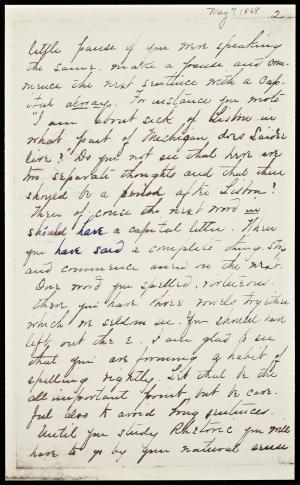 May 7, 1868 2
little pause if you were speaking
the same. make a pause and com-
mence the next sentence with a cap-
ital always. For instance you wrote
"I am about sick of Lisbon in
what part of Michigan does Saider
live?" Do you not see that here are
two separate thoughts and that there
should be a period after Lisbon?
Then of course the next word in
should have a capital letter. When
you have said a complete thing, stop
and commence anew on the next.
One word you spelled,
there you have three vowels together
which we seldom see. You should have
left out the e. I am glad to see
that you are forming a habit of
spelling rightly. Let that be the
all important point but be care-
ful also to avoid long sentences.
Until you study Rhetoric you will
have to go by your natural sense